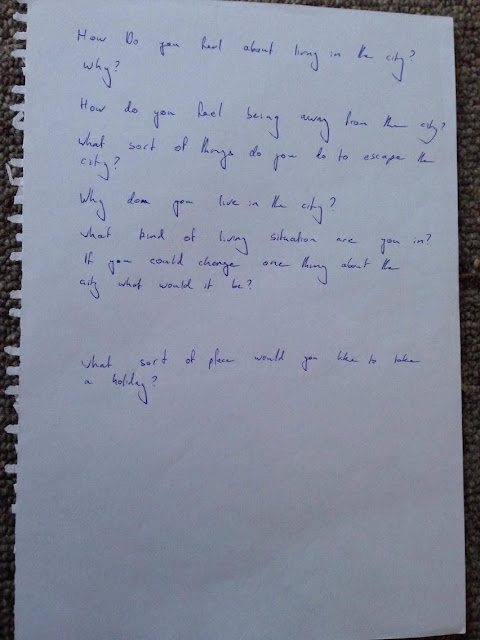 How Do you feel about living in the city?
Why?
How do you feel being away from the city?
What sort of things do you do to escape the
city?
Why do you live in the city?
What kind of living situation are you in?
If you could change one thing about the
city what would it be?
What sort of place would you like to take
a holiday?